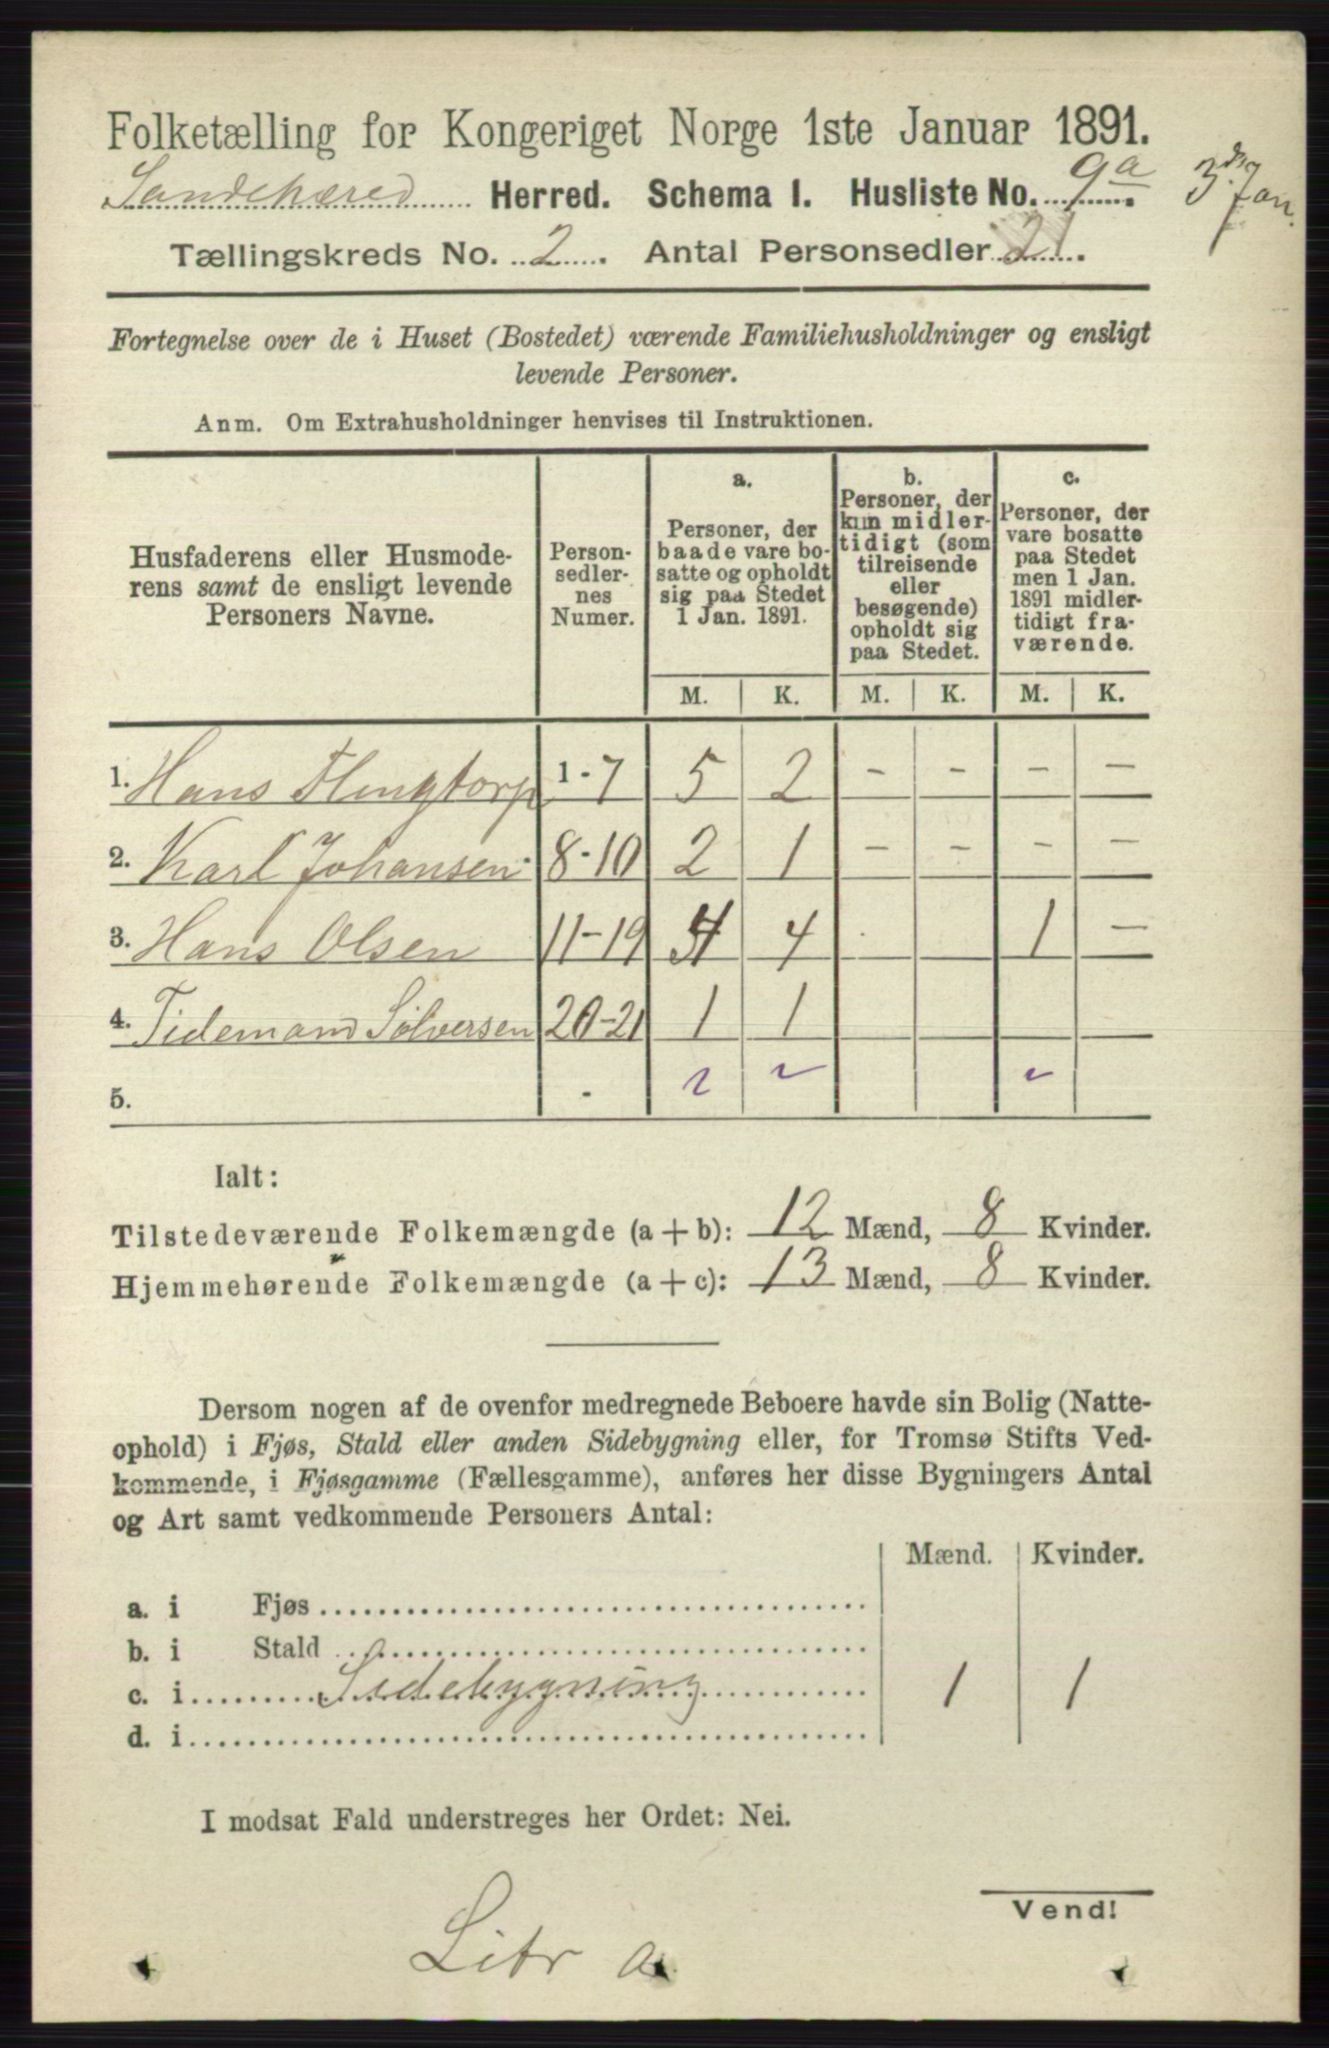 Folketælling for Kongeriget Norge 1ste Januar 1891.
Sandehæred Herred. Schema I. Husliste No. 9a
3die Jan.
Tællingskreds No. 2. Antal Personsedler 21.
Fortegnelse over de i Huset (Bostedet) værende Familiehusholdninger og ensligt
levende Personer.
Anm. Om Extrahusholdninger henvises til Instruktionen.
Husfaderens eller Husmode-
rens samt de ensligt levende
Personers Navne.
Person-
sedler-
nes
Numer.
a.
Personer, der
baade vare bo-
satte og opholdt
sig paa Stedet
1 Jan. 1891.
b.
Personer, der
kun midler-
tidigt (som
tilreisende
eller
besøgende)
opholdt sig
paa Stedet.
c.
Personer, der
vare bosatte
paa Stedet
men 1 Jan.
1891 midler-
tidigt fra-
værende.
M. K. M. K. M. K.
1. Hans Flingtorp 1-7 5 2 - - - -
2. Karl Johansen 8-10 2 1 - - - -
3. Hans Olsen 11-19 4 4 1 -
4. Tidemand Sølversen 20-21 1 1
5. -
Ialt:
Tilstedeværende Folkemængde (a + b): 12 Mænd, 8 Kvinder.
Hjemmehørende Folkemængde (a + c): 13 Mænd, 8 Kvinder.
Dersom nogen af de ovenfor medregnede Beboere havde sin Bolig (Natte-
ophold) i Fjøs, Stald eller anden Sidebygning eller, for Tromsø Stifts Ved-
kommende, i Fjøsgamme (Fællesgamme), anføres her disse Bygningers Antal
og Art samt vedkommende Personers Antal:
Mænd. Kvinder.
a. i Fjøs
b. i Stald
c. i Sidebygning 1 1
d. i
I modsat Fald understreges her Ordet: Nei.
Vend!
Litr a